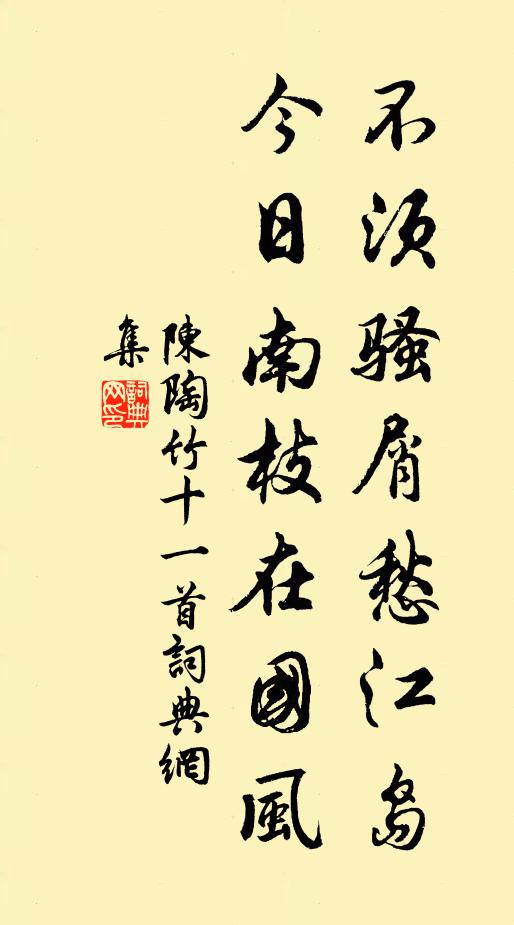 不須騷屑愁江島
今日南枝在國風
陳陶竹十一首詞典網
集
詞典